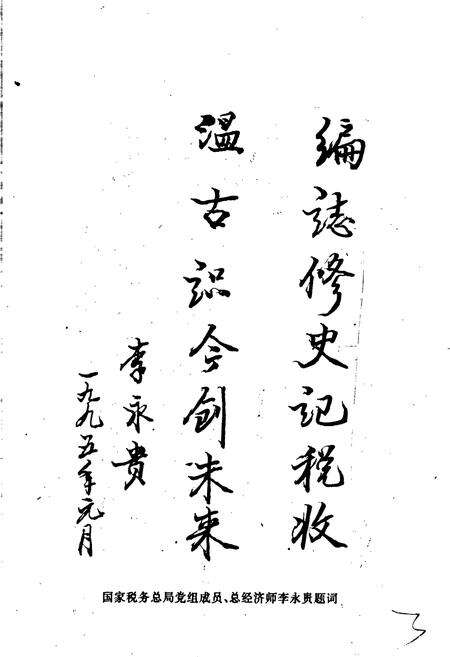 编誌修史记税收
温古识今创未来
李永贵
一九九五年元月
国家税务总局党组成员、总经济师李永贵题词
3